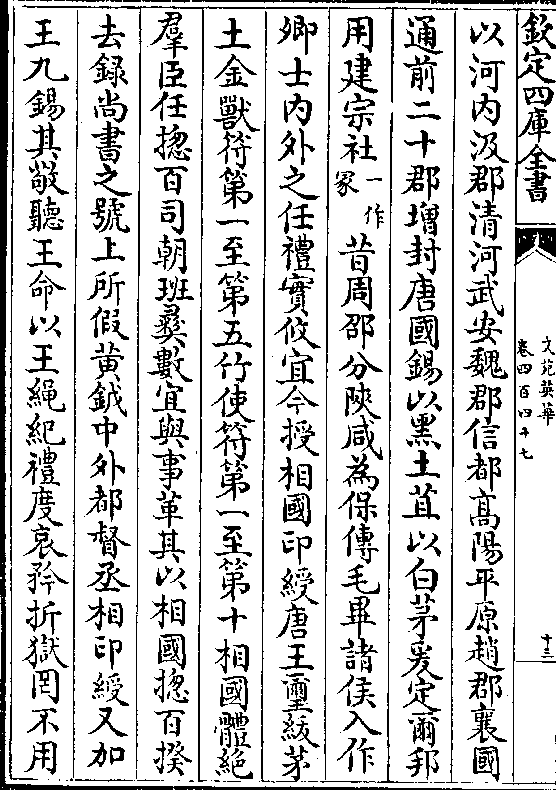 欽定四庫全書
文苑英華
卷四百四十七
十三
以河内汲郡清河武安魏郡信都髙陽平原趙郡襄國
通前二十郡増封唐國錫以黑土苴以白茅爰定爾邦
用建宗社一作冡昔周邵分陜咸為保傅毛畢諸侯入作
卿士内外之任禮實攸宜今授相國印綬唐王璽紱茅
土金獸符第一至第五竹使符第一至第十相國體絶
羣臣任揔百司朝班彛數宜與事革其以相國揔百揆
去録尚書之號上所假黄鉞中外都督丞相印綬又加
王九錫其敬聽王命以王繩紀禮度哀矜折獄罔不用